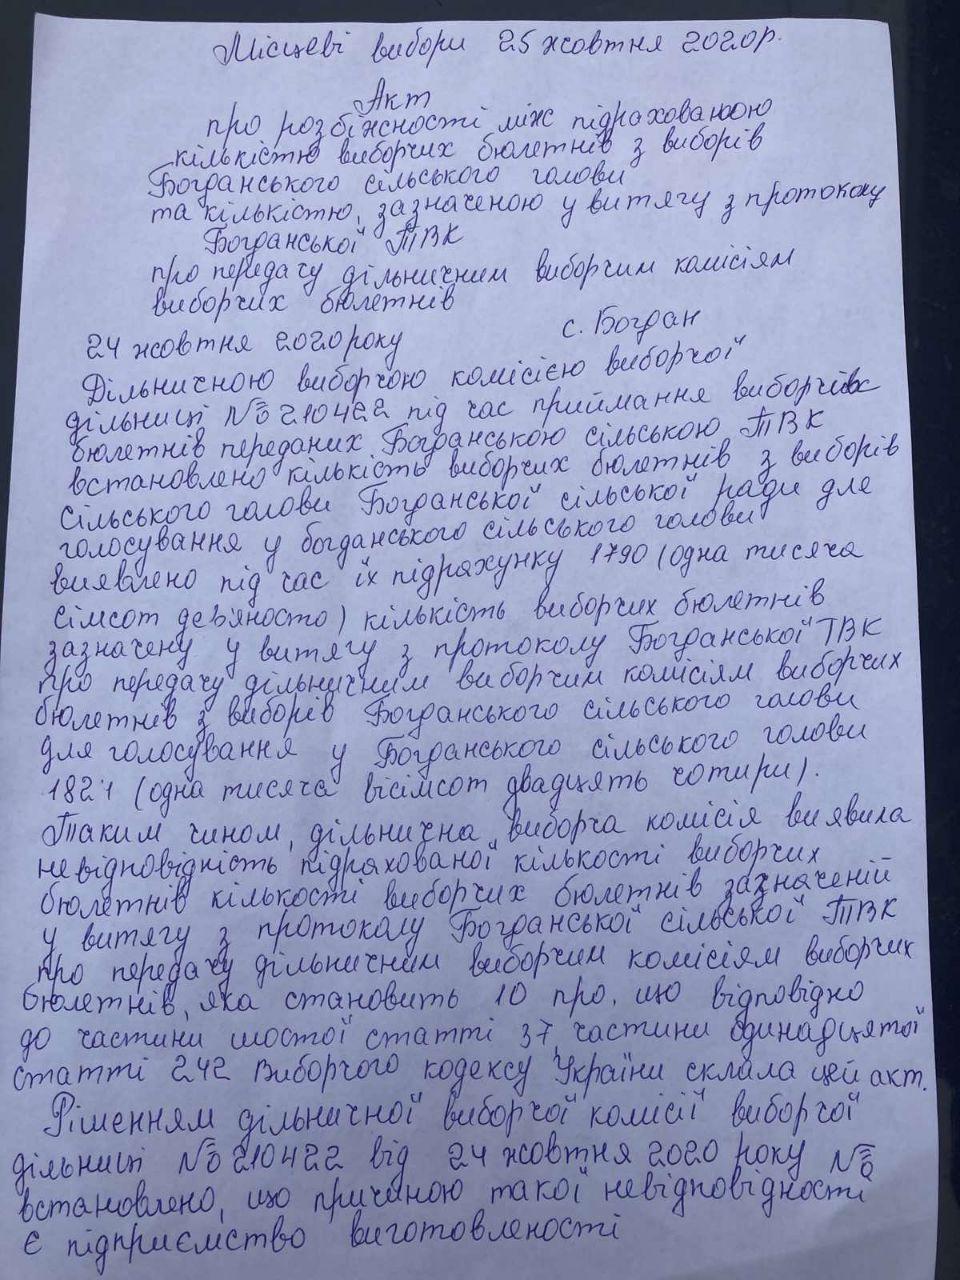 Місцеві вибори 25 жовтня 2020р.
Акт
про розбіжності між підрахованою
кількістю виборчих бюлетнів з виборів
Богданського сільського голови
та кількістю, зазначеною у витягу з протоколу
Богданської ТВК
про передачу дільничним виборчим комісіям
виборчих бюлетнів
24 жовтня 2020 року с. Богдан
Дільничною виборчою комісією виборчої
дільниці № 210422 під час приймання виборчих
бюлетнів переданих Богданською сільською ТВК
встановлено кількість виборчих бюлетнів з виборів
сільського голови Богданської сільської ради для
голосування у богданського сільського голови
виявлено під час їх підрахунку 1790 (одна тисяча
сімсот дев'яносто) кількість виборчих бюлетнів
зазначену у витягу з протоколу Богданської ТВК
про передачу дільничним виборчим комісіям виборчих
бюлетнів з виборів Богданського сільського голови
для голосування у Богданського сільського голови
1824 (одна тисяча вісімсот двадцять чотири).
Таким чином, дільнична виборча комісія виявила
невідповідність підрахованої кількості виборчих
бюлетнів кількості виборчих бюлетнів зазначеній
у витягу з протоколу Богданської сільської ТВК
про передачу дільничним виборчим комісіям виборчих
бюлетнів, яка становить 10 про, що відповідно
до частини шостої статті 37 частини одинадцятої
статті 242 Виборчого кодексу України склала цей акт.
Рішенням дільничної виборчої комісії виборчої
дільниці № 210422 від 24 жовтня 2020 року №
встановлено, що причиною такої невідповідності
є підприємство виготовленості